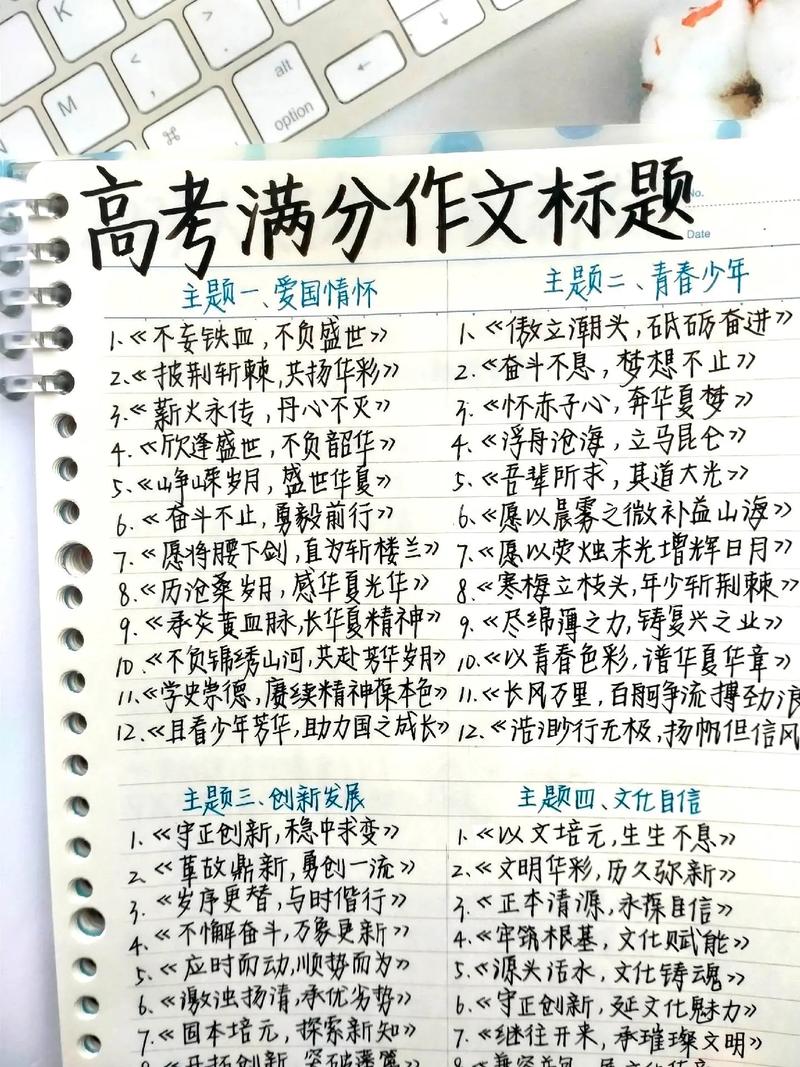 K
M
<
,
>
.
⌘
alt
option
←
↓
高考满分作文标题
No.
Date
主题一、爱国情怀
1.《不妄铁血,不负盛世》
2.《披荆斩棘,共扬华彩》
3.《薪火永传,丹心不灭》
4.《欣逢盛世,不负韶华》
5.《峥嵘岁月,盛世华夏》
6.《奋斗不止,勇毅前行》
7.《愿将腰下剑,直为斩楼兰》
8.《历沧桑岁月,感华夏光华》
9.《承炎黄血脉,长华夏精神》
10.《不负锦绣山河,共赴芳华岁月》
11.《学史崇德,赓续精神葆本色》
12.《且看少年芳华,助力国之成长》
主题二、青春少年
1.《傲立潮头,砥砺奋进》
2.《奋斗不息,梦想不止》
3.《怀赤子心,奔华夏梦》
4.《浮舟沧海,立马昆仑》
5.《吾辈所求,其道大光》
6.《愿以晨雾之微补益山海》
7.《愿以荧烛末光增辉日月》
8.《寒梅立枝头,年少斩荆棘》
9.《尽绵薄之力,铸复兴之业》
10.《以青春色彩,谱华夏华章》
11.《长风万里,百舸争流搏劲浪
12.《浩渺行无极,扬帆但信风
主题三、创新发展
1.《守正创新,稳中求变》
2.《革故鼎新,勇创一流》
3.《岁序更替,与时偕行》
4.《不懈奋斗,万象更新》
5.《应时而动,顺势而为》
6.《激浊扬清,承优劣势》
7.《固本培元,探索新知》
8.《开拓创新,突破藩篱》
主题四、文化自信
1.《以文培元,生生不息》
2.《文明华彩,历久弥新》
3.《正本清源,永葆自信》
4.《牢筑根基,文化赋能》
5.《源头活水,文化铸魂》
6.《守正创新,延文化魅力》
7.《继往开来,承璀璨文明》
8.《兼容并包,